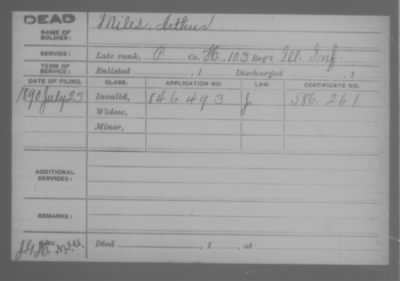 DEAD
NAME OF SOLDIER: Miles, Arthur
SERVICE: Late rank, P Co. H, 103 Reg't Ill. Inf.
TERM OF SERVICE: Enlisted , 1 Discharged , 1
DATE OF FILING. CLASS. APPLICATION NO. LAW. CERTIFICATE NO.
1890 July 23 Invalid, 846.493 J 586.261
Widow,
Minor,
ADDITIONAL SERVICES:
REMARKS:
Died , 1 , at